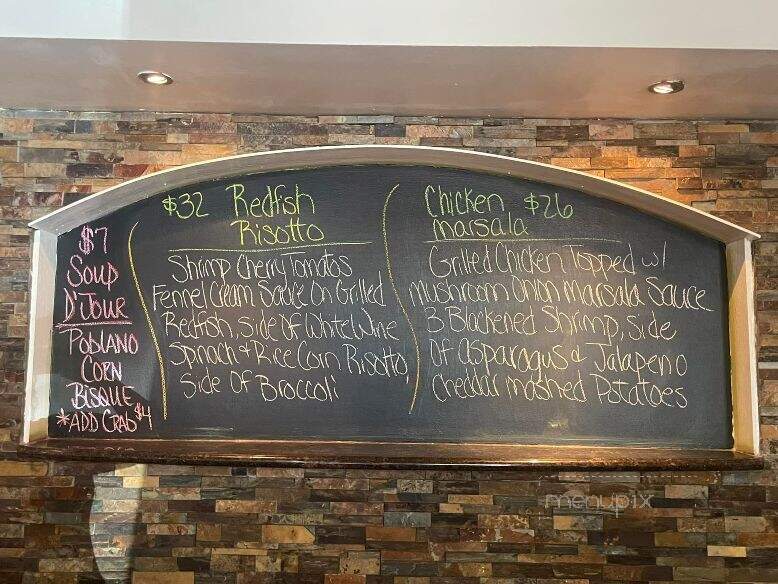 $7
Soup
D'Jour
Poblano
Corn
Bisque
*ADD Crab $4
$32 Redfish
Risotto
Shrimp Cherry Tomatos
Fennel Cream Sauce On Grilled
Redfish, side Of White Wine
Spinach & Rice Corn Risotto,
Side Of Broccoli
Chicken $26
marsala
Grilled Chicken Topped w/
mushroom Onion marsala Sauce
3 Blackened Shrimp, Side
Of asparagus & Jalapeno
cheddar mashed Potatoes
menupix